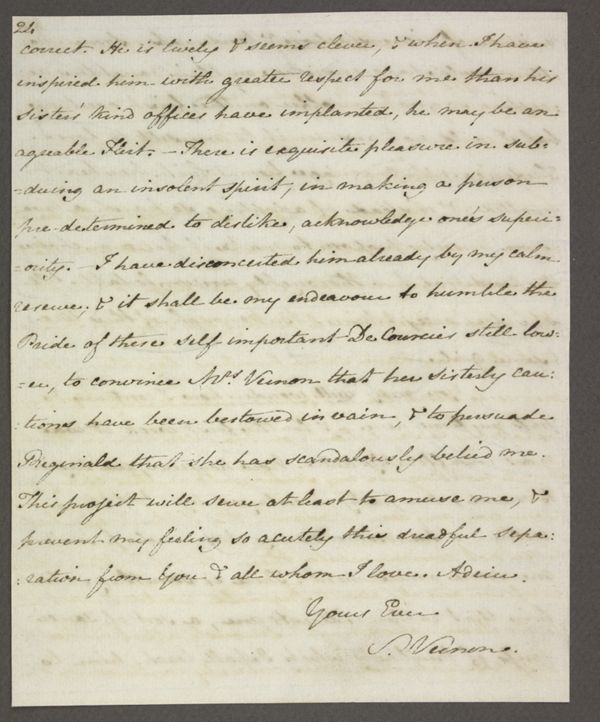 24
correct. He is lively & seems clever, & when I have
inspired him with greater respect for me than his
Sister's kind offices have implanted, he may be an
agreable Flirt. — There is exquisite pleasure in sub-
-duing an insolent spirit, in making a person
pre-determined to dislike, acknowledge one's superi-
-ority. — I have disconcerted him already by my calm
reserve; & it shall be my endeavour to humble the
Pride of these self important De Courcies still low-
-er, to convince Mrs Vernon that her sisterly cau:
:tions have been bestowed in vain, & to persuade
Reginald that she has scandalously belied me.
This project will serve at least to amuse me, &
prevent my feeling so acutely this dreadful sepa:
:ration from You & all whom I love. Adeiu.
Yours Ever
S. Vernon.